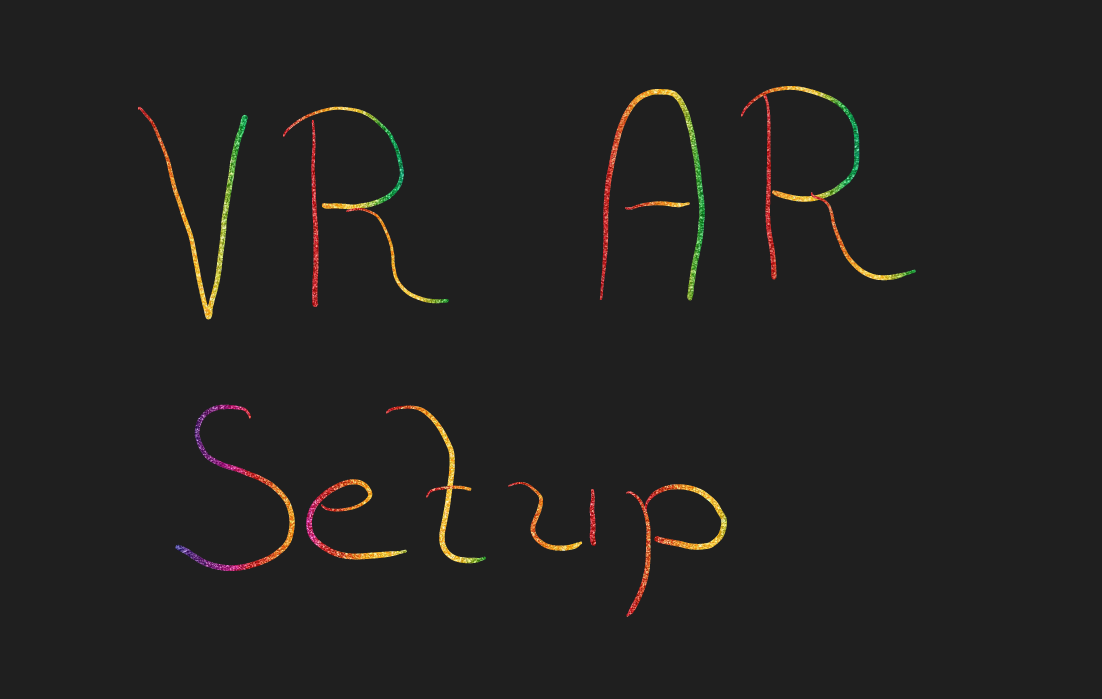 VR AR
Setup